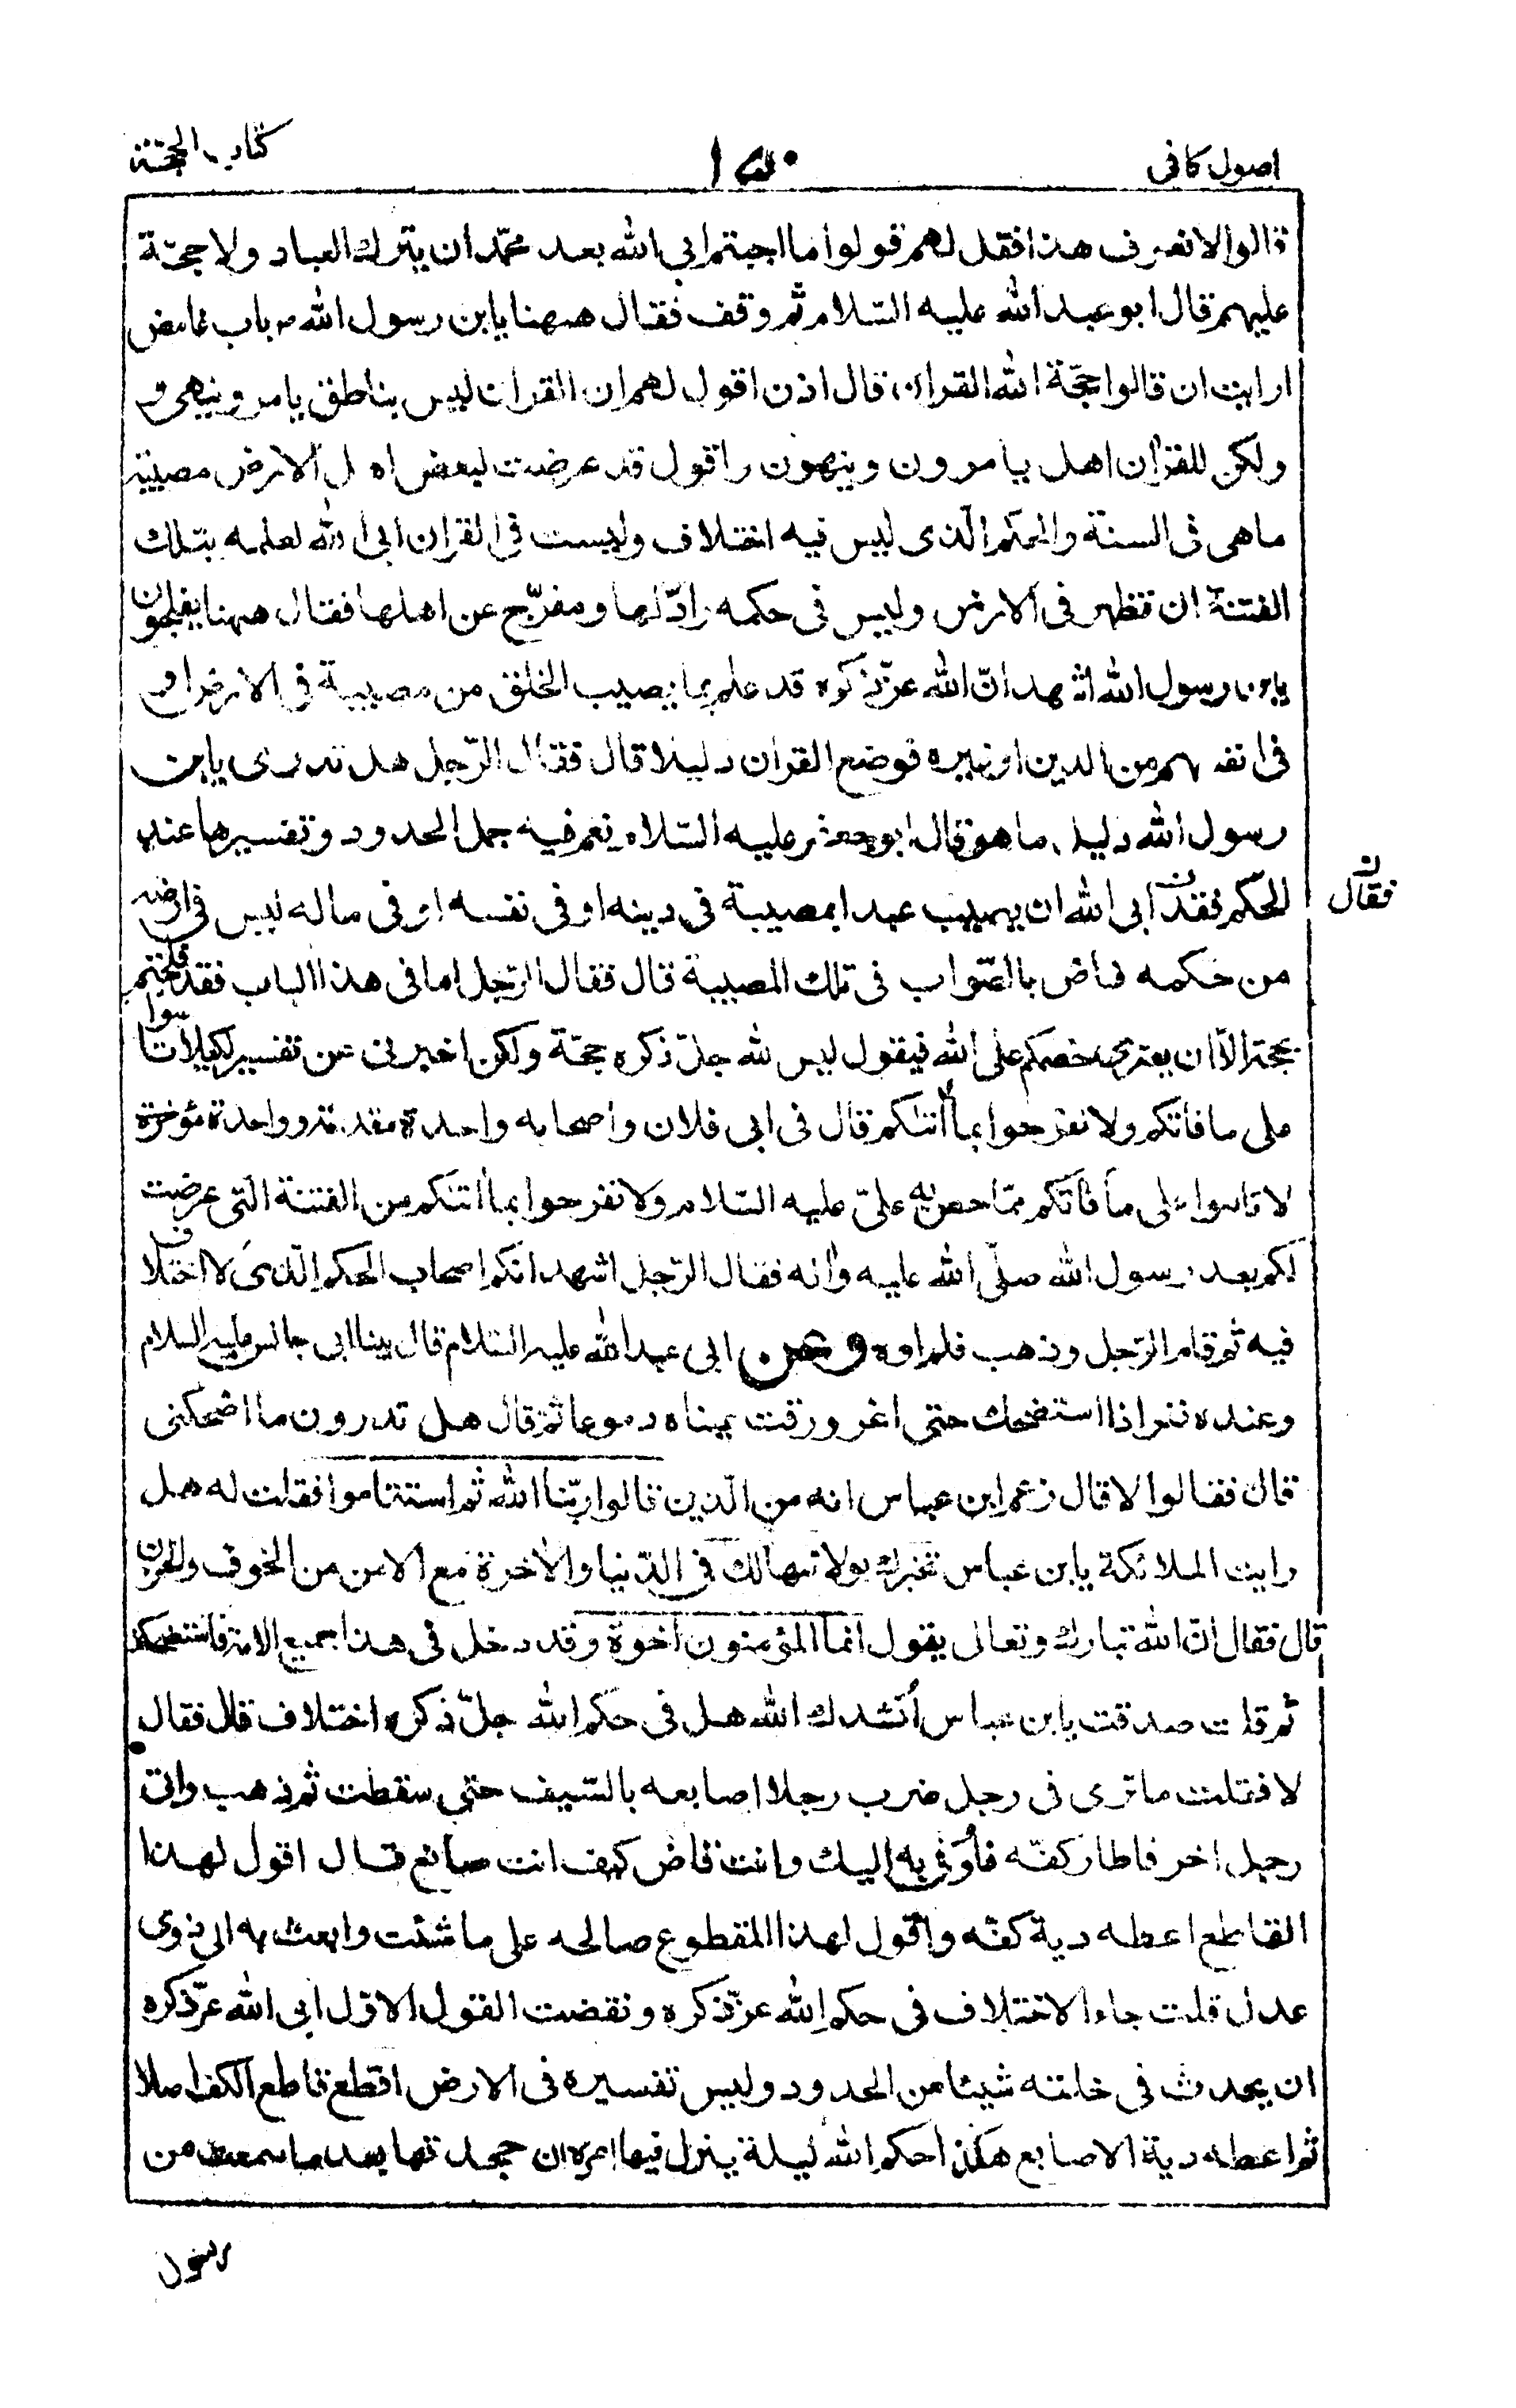 اصول كافى
١٥٠
كتاب الحجّة
قالوا لا نعرف هذا فقل لهم قولوا ما احببتم ابى الله بعد محمّد ان يترك العباد ولا حجّة
عليهم قال ابو عبد الله عليه السّلام ثم وقف فقال ههنا يابن رسول الله ص باب غامض
ارايت ان قالوا حجّة الله القران قال اذن اقول لهم ان القران ليس بناطق يامر وينهى و
ولكن للقرٰان اهل يامرون وينهون واقول قد عرضت لبعض اهل الارض مصيبة
ما هى فى السنة والحكم الّذى ليس فيه اختلاف وليست فى القران ابى الله لعلمه بتلك
الفتنة ان تظهر فى الارض وليس فى حكمه رادّ لها ومفرّج عن اهلها فقال ههنا يفلجون
يابن رسول الله اشهد انّ الله عزّ ذكره قد علم بما يصيب الخلق من مصيبة فى الارض او
فى انفسهم من الدين او غيره فوضع القران دليلا قال فقال الرّجل هل تدرى يابن
رسول الله دليل ما هو قال ابو جعفر عليه السّلام نعم فيه جمل الحدود وتفسيرها عند
الحكم فقد ابى الله ان يصيب عبدا بمصيبة فى دينه او فى نفسه او فى ماله ليس فى ارضه
فقال ن
من حكمه قاض بالصّواب فى تلك المصيبة قال فقال الرّجل اما فى هذا الباب فقد فلجتم
بحجة الّا ان يفترى خصمكم على الله فيقول ليس لله جلّ ذكره حجّة ولكن اخبرنى عن تفسير لكيلا تاسوا
على ما فاتكم ولا تفرحوا بما اٰتٰكم قال فى ابى فلان واصحابه واحدة مقدمة وواحدة مؤخرة
لا تاسوا على ما فاتكم ممّا خص به علىّ عليه السّلام ولا تفرحوا بما اتٰكم من الفتنة الّتى عرضت
لكم بعد رسول الله صلّى الله عليه واٰله فقال الرّجل اشهد انكم اصحاب الحكم الّذى لا اختلاف
فيه ثم قام الرّجل وذهب فلم اره وعن ابى عبد الله عليه السّلام قال بينا ابى جالس عليه السلام
وعنده نفر اذا استضحك حتى اغرورقت عيناه دموعا ثم قال هل تدرون ما اضحكنى
قال فقالوا لا قال زعم ابن عباس انه من الّذين قالوا ربّنا الله ثم استقاموا فقلت له هل
رايت الملائكة يابن عباس تخبرك بولايتها لك فى الدّنيا والاٰخرة مع الامن من الخوف والحزن
قال فقال انّ الله تبارك وتعالى يقول انما المؤمنون اخوة وقد دخل فى هذا جميع الامة فاستضحكت
ثم قلت صدقت يابن عباس اُنشدك الله هل فى حكم الله جلّ ذكره اختلاف قال فقال
لا فقلت ما ترى فى رجل ضرب رجلا اصابعه بالسّيف حتى سقطت ثم ذهب واتى
رجل اخر فاطار كفّه فأوتى به اليك وانت قاض كيف انت صانع قال اقول لهذا
القاطع اعطه دية كفّه واقول لهذا المقطوع صالحه على ما شئت وابعث به الى ذوى
عدل قلت جاء الاختلاف فى حكم الله عزّ ذكره ونقضت القول الاوّل ابى الله عزّ ذكره
ان يحدث فى خلقه شيئا من الحدود وليس تفسيره فى الارض اقطع قاطع الكف اصلا
ثم اعطه دية الاصابع هكذا حكم الله ليلة ينزل فيها امره ان جحدتها بعد ما سمعت من
رسول